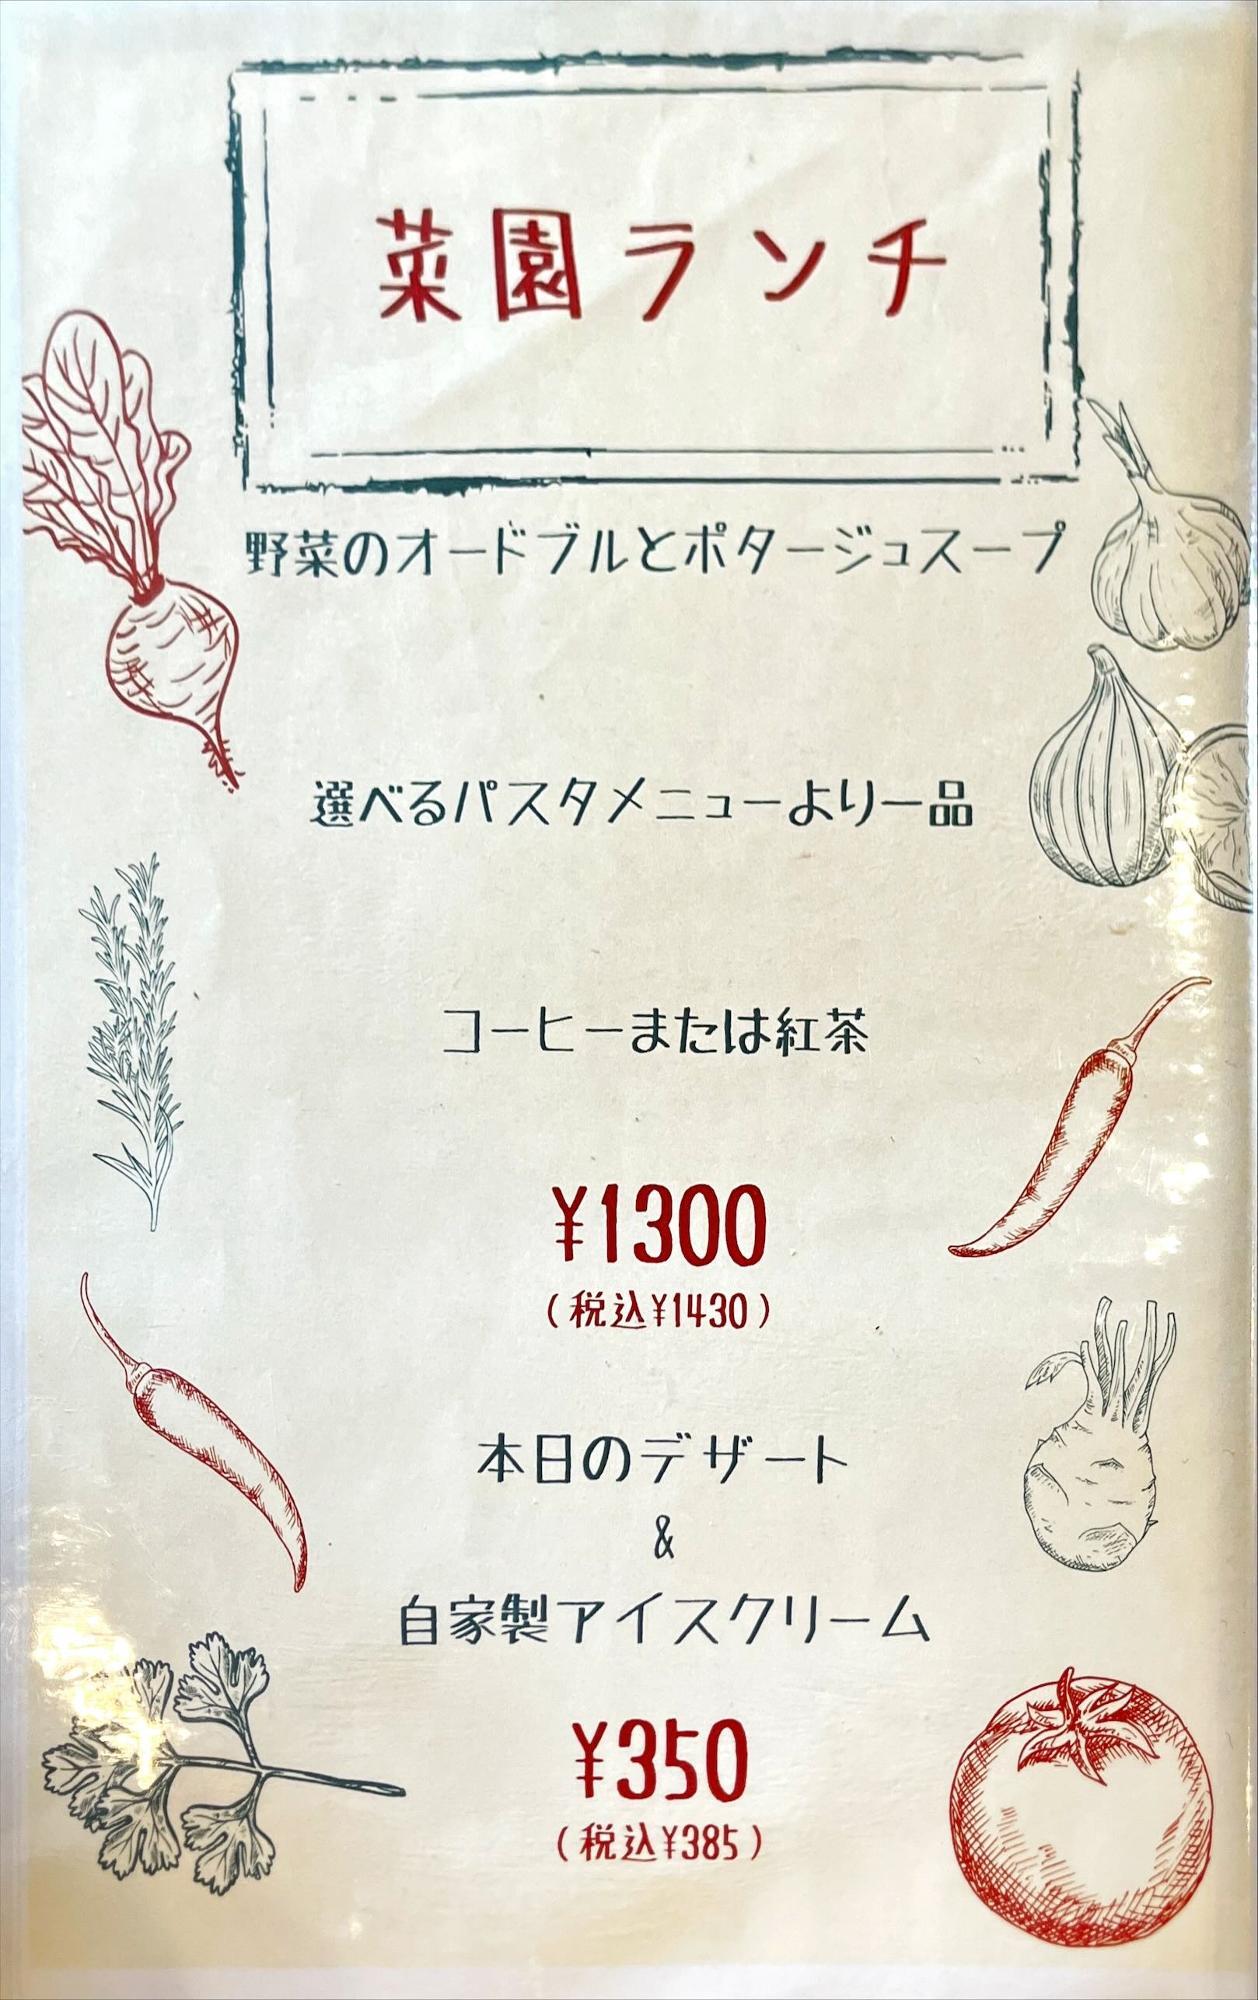 菜園ランチ
野菜のオードブルとポタージュスープ
選べるパスタメニューより一品
コーヒーまたは紅茶
¥1300
(税込¥1430)
本日のデザート
&
自家製アイスクリーム
¥350
(税込¥385)